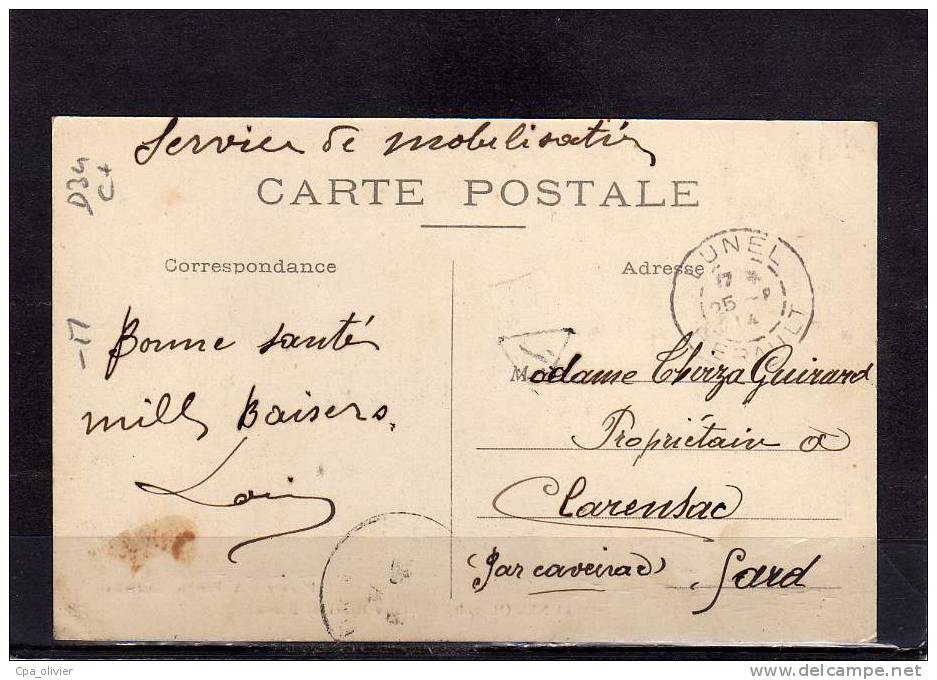 Service de mobilisation
D34
C+
CARTE POSTALE
Correspondance
Adresse
LUNEL
17
25 -
14
HERAULT
-17
Bonne santé
mille Baisers.
Madame Thirza Guirard
Propriétaire à
Clarensac
(Par caveirac) Gard
Cpa_olivier
www.delcampe.net